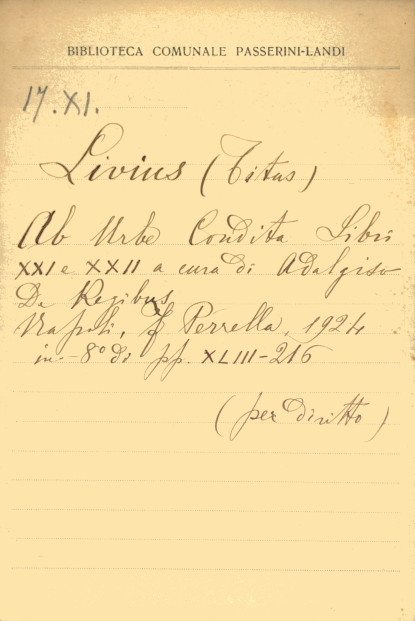 BIBLIOTECA COMUNALE PASSERINI-LANDI
17.XI.
Livius (Titus)
Ab Urbe Condita Libri
XXI e XXII a cura di Adalgiso
De Regibus
Napoli, F. Perrella, 1924
in-8° di pp. XLIII-216
(per diritto)